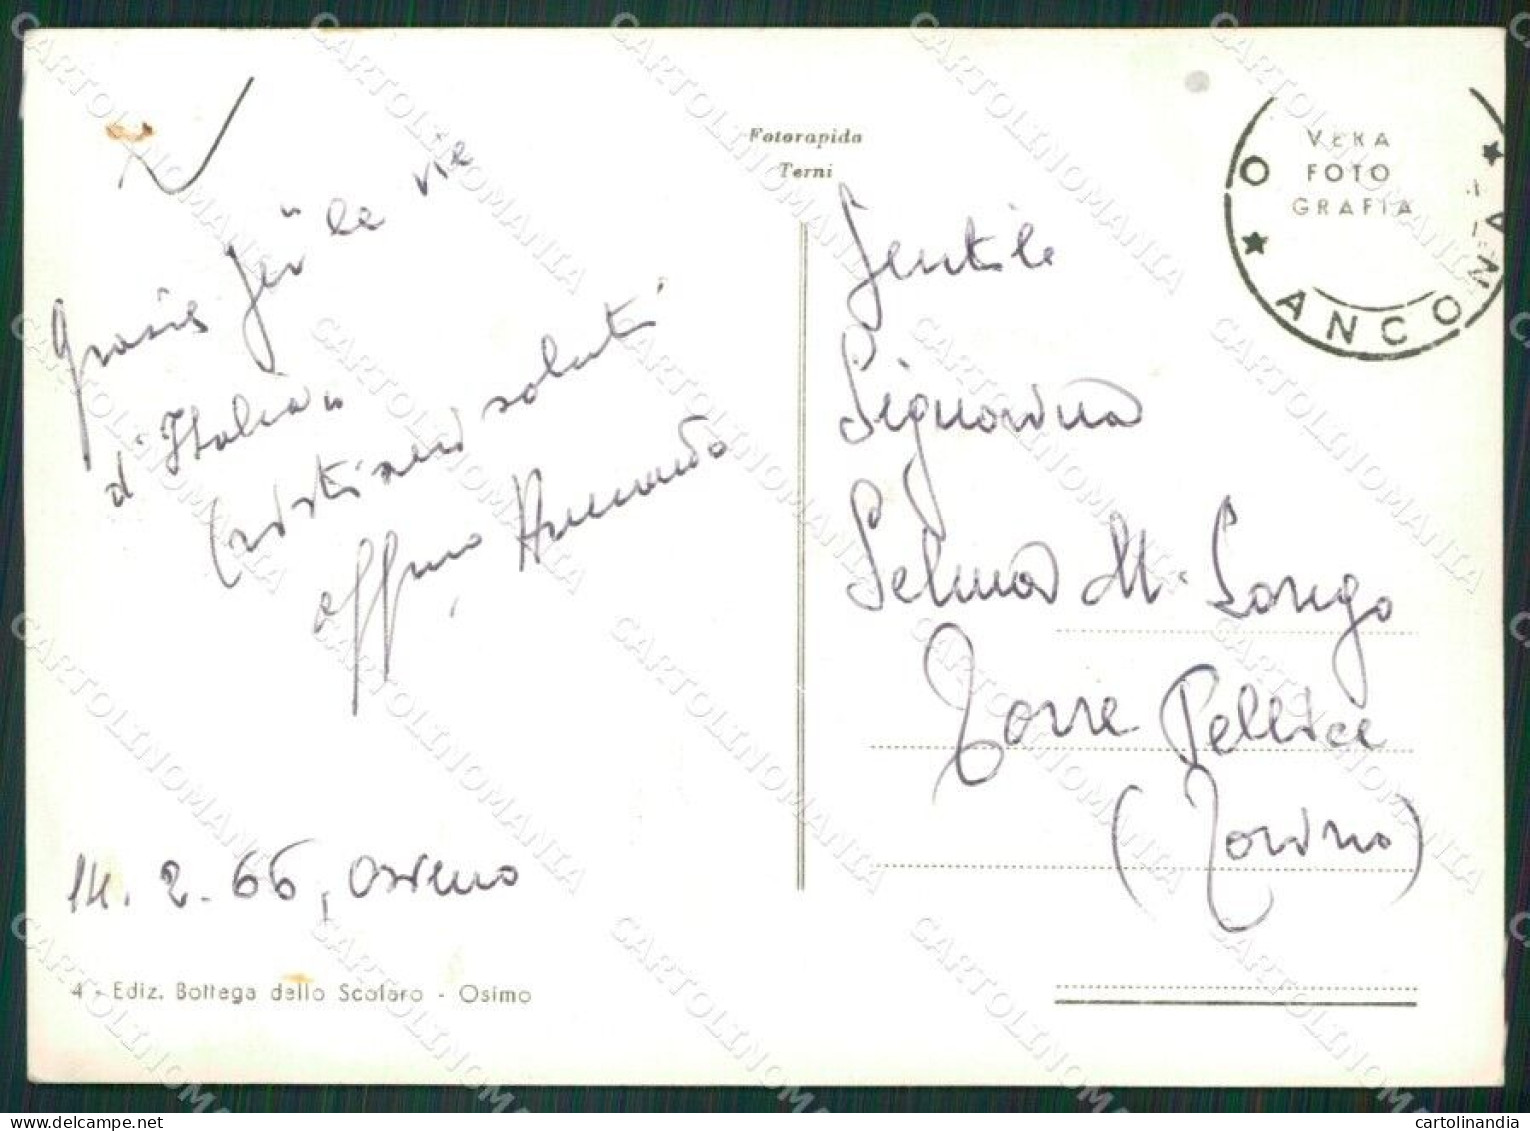 Grazie per "le vie
d'Italia"
Cristiani saluti
aff.mo Armando
14. 2. 66, Osimo
4 - Ediz. Bottega dello Scolaro - Osimo
Fotorapida
Terni
VERA
FOTO
GRAFIA
ANCONA
Gentile
Signorina
Selma M. Longo
Torre Pellice
(Torino)
CARTOLINOMANIA
cartolinandia